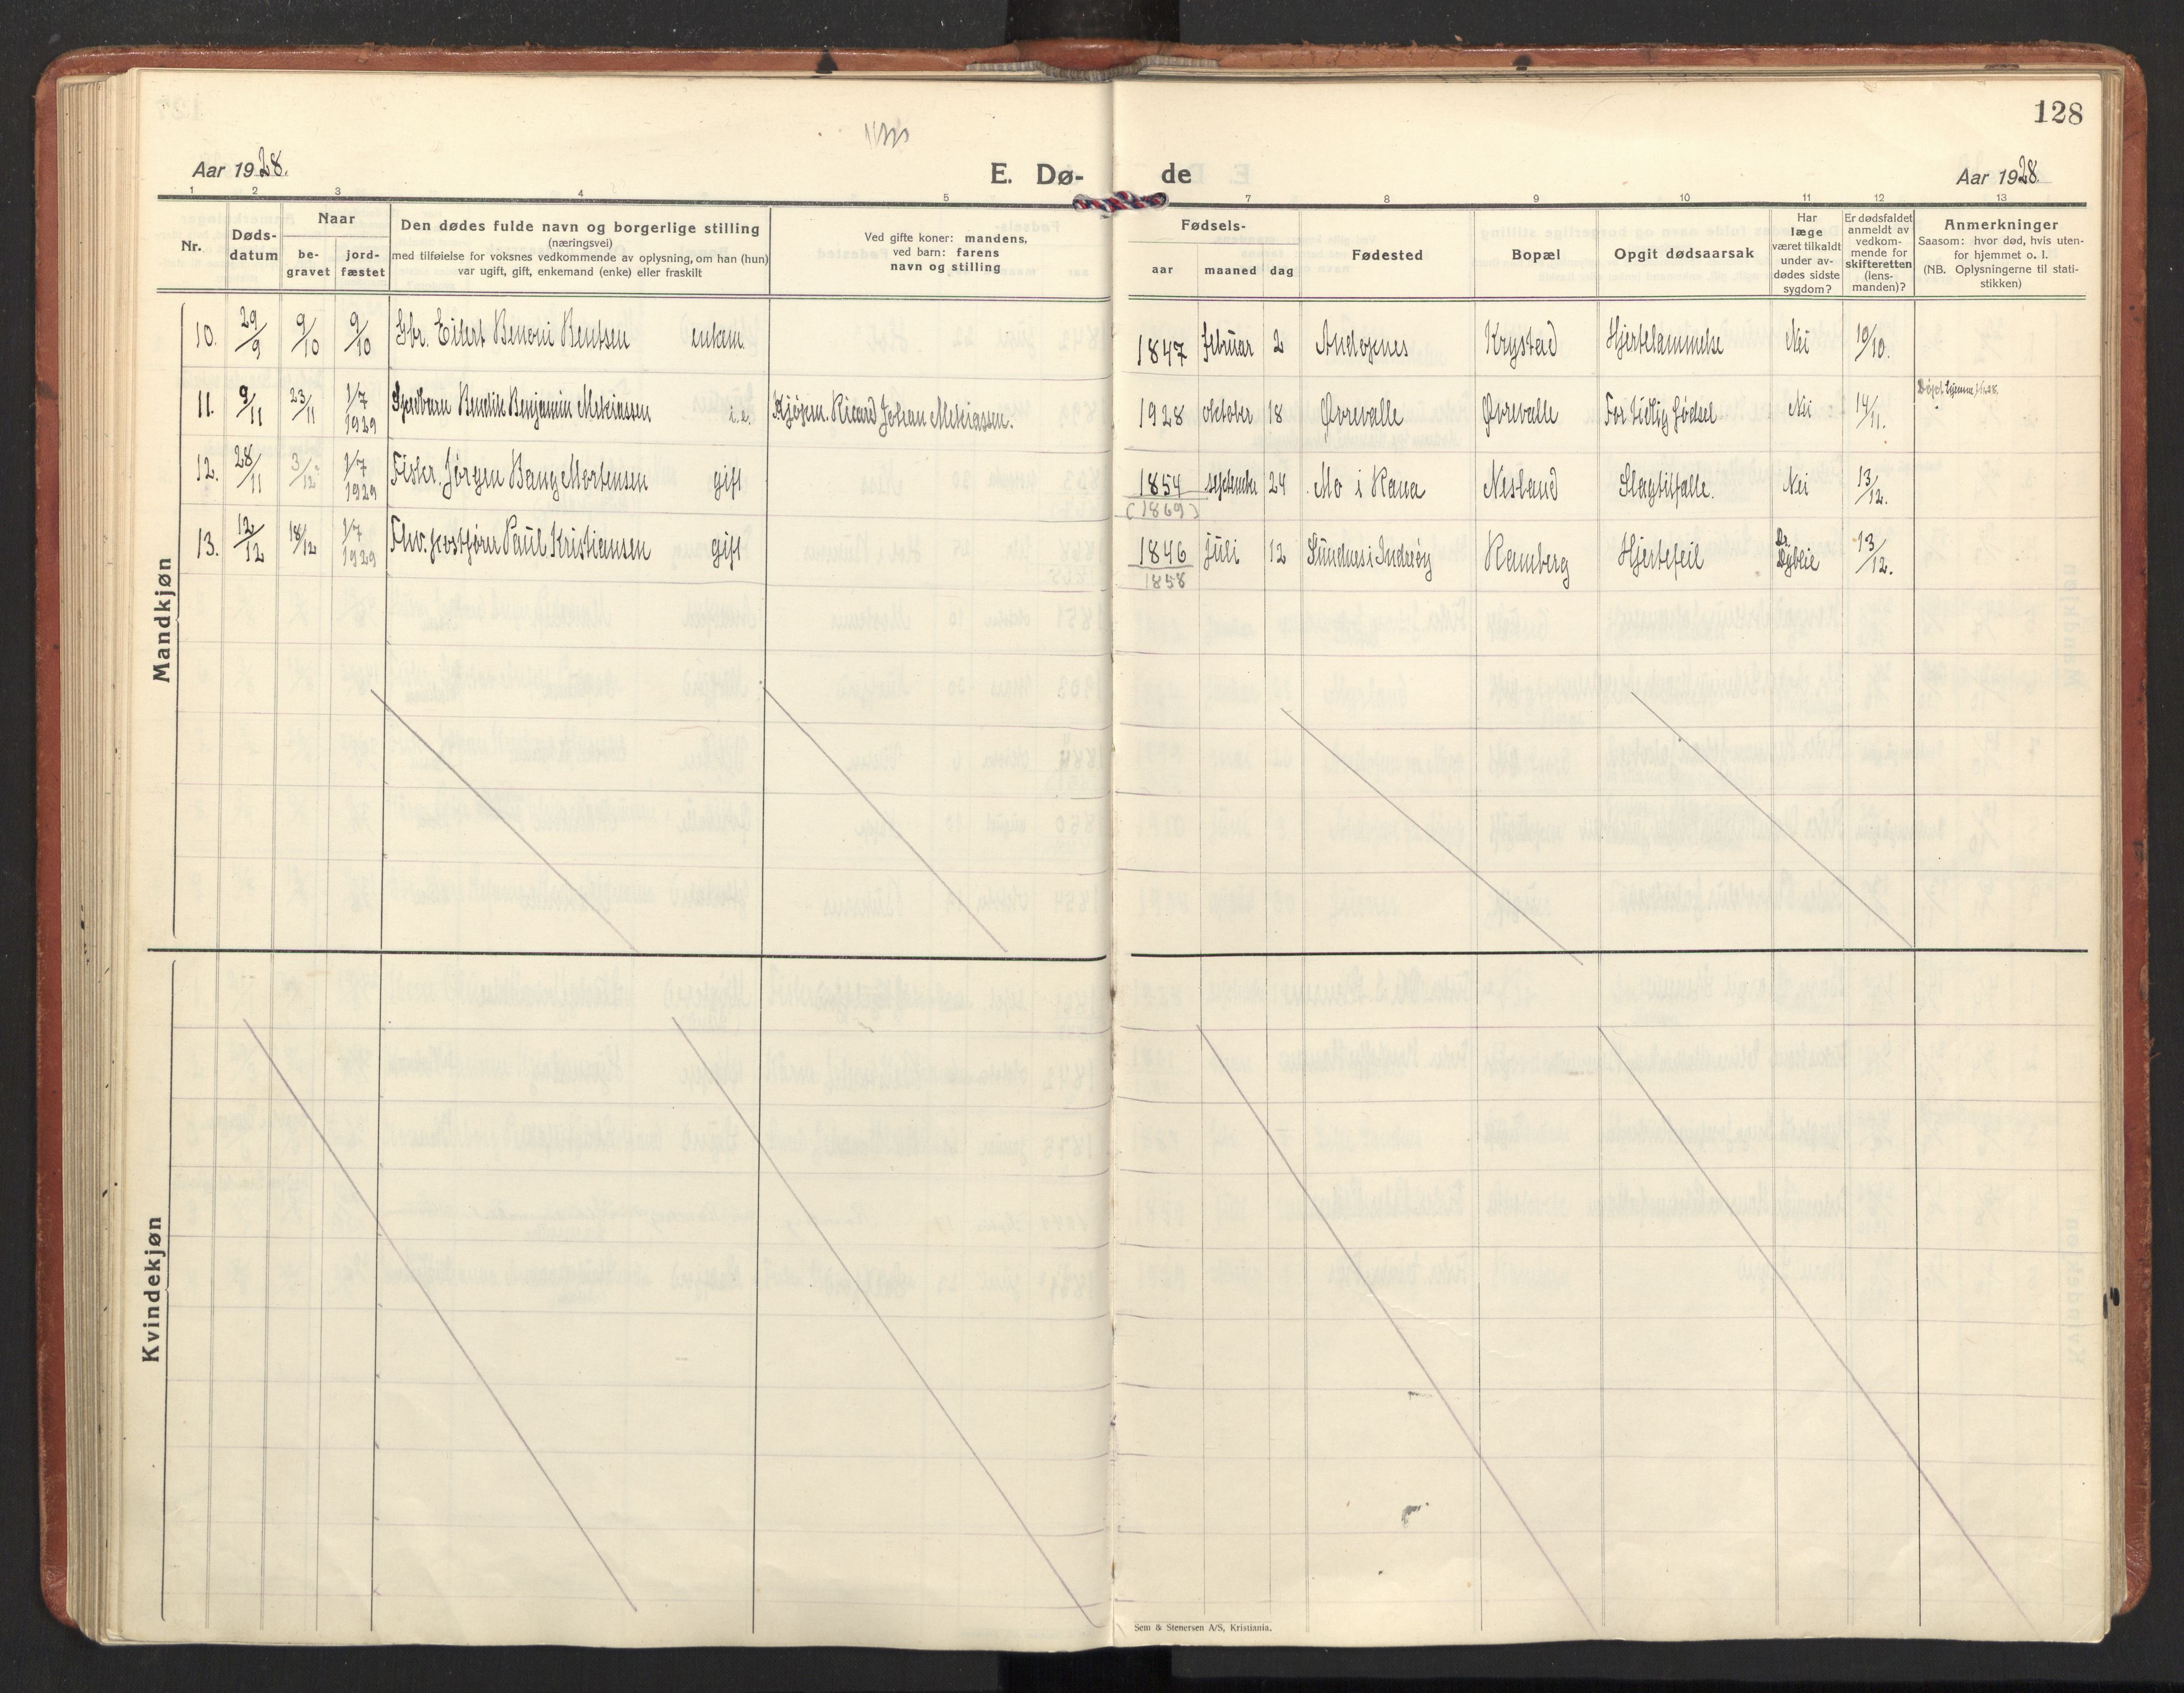 128
Aar 1928.
E. Dø-
de
Aar 1928.
1 2 3 4 5 7 8 9 10 11 12 13
Nr.
Døds-
datum
Naar
be-
gravet
jord-
fæstet
Den dødes fulde navn og borgerlige stilling
(næringsvei)
med tilføielse for voksnes vedkommende av oplysning, om han (hun)
var ugift, gift, enkemand (enke) eller fraskilt
Ved gifte koner: mandens,
ved barn: farens
navn og stilling
Fødsels-
aar
maaned
dag
Fødested
Bopæl
Opgit dødsaarsak
Har
læge
været tilkaldt
under av-
dødes sidste
sygdom?
Er dødsfaldet
anmeldt av
vedkom-
mende for
skifteretten
(lens-
manden)?
Anmerkninger
Saasom: hvor død, hvis uten-
for hjemmet o. l.
(NB. Oplysningerne til stati-
stikken)
Mandkjøn
10. 29/9 9/10 9/10 Gbr. Eilert Benoni Bentsen enkem. 1847 februar 2 Andopnes Krystad Hjertelammelse Nei 19/10.
11. 9/11 23/11 1/7 1929 Spedbarn Bendik Benjamin Mekiassen Ricard Johan Mekiassen. 1928 oktober 18 Østrevalle Østrevalle For tidlig fødsel Nei 14/11. Døpt hjemme
12. 28/11 3/12 1/7 1929 Fisker. Jørgen Bang Mortensen gift 1854 september 24 Mo i Rana Nesland Slagtilfælle. Nei 13/12.
(1869)
13. 12/12 18/12 1/7 1929 Fhv. Paul Kristiansen gift 1846 juli 12 Sundnes i Inderøy Ramberg Hjertefeil Dr. 13/12.
1858
Kvindekjøn
Sem & Stenersen A/S, Kristiania.